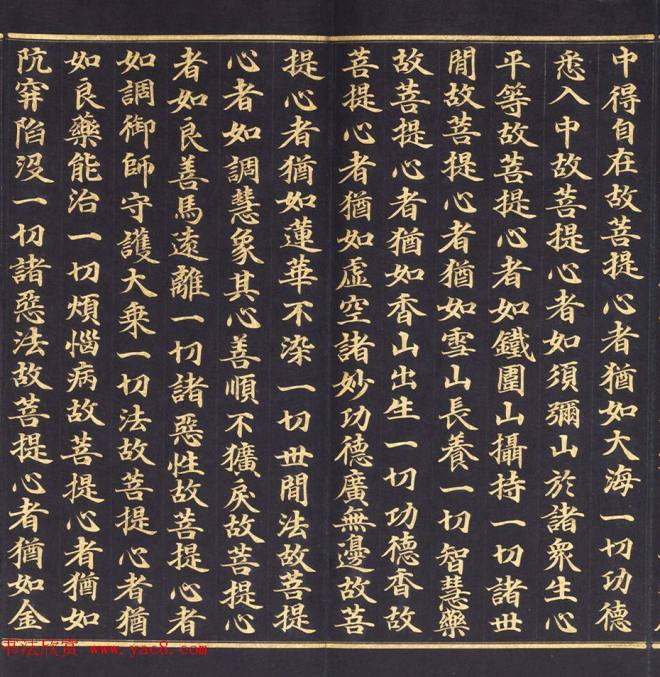 中得自在故菩提心者猶如大海一切功德
悉入中故菩提心者如須彌山於諸衆生心
平等故菩提心者如鐵圍山攝持一切諸世
間故菩提心者猶如雪山長養一切智慧藥
故菩提心者猶如香山出生一切功德香故
菩提心者猶如虛空諸妙功德廣無邊故菩
提心者猶如蓮華不染一切世間法故菩提
心者如調慧象其心善順不獷戾故菩提心
者如良善馬遠離一切諸惡性故菩提心者
如調御師守護大乘一切法故菩提心者猶
如良藥能治一切煩惱病故菩提心者猶如
阬穽陷沒一切諸惡法故菩提心者猶如金
书法欣赏 www.yac8.com